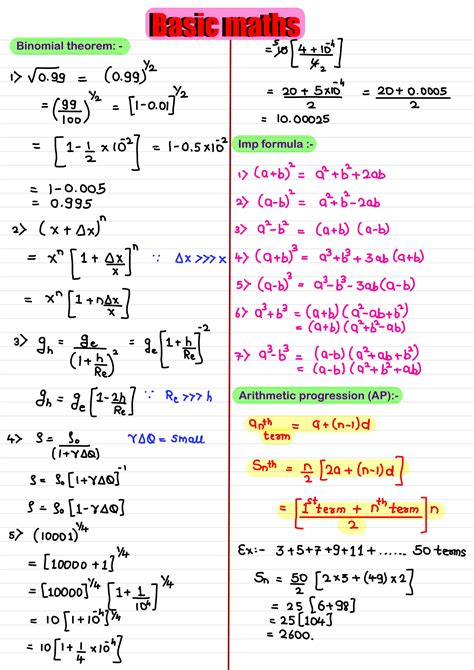 Basic maths
Binomial theorem: -
1) √0.99 = (0.99)^1/2
= (99/100)^1/2 = [1-0.01]^1/2
= [1 - 1/2 × 10^-2] = 1-0.5×10^-2
= 1-0.005
= 0.995
2) (x + Δx)^n
= x^n [1 + Δx/x]^n ∵ Δx >>> x
= x^n [1 + nΔx/x]
3) g_h = g_e/(1 + h/R_e)^2 = g_e [1 + h/R_e]^-2
g_h = g_e [1 - 2h/R_e] ∵ R_e >>> h
4) S = S_0/(1+γΔQ) γΔQ = small
S = S_0 [1+γΔQ]^-1
S = S_0 [1-γΔQ]
5) (10001)^1/4
= [10000 + 1]^1/4
= [10000]^1/4 [1 + 1/10^4]^1/4
= 10 [1+10^-4]^1/4
= 10 [1 + 1/4 × 10^-4]
= 5 10 [4 + 10^-4 / 4 2]
= 20 + 5×10^-4 / 2 = 20 + 0.0005 / 2
= 10.00025
Imp formula :-
1) (a+b)^2 = a^2+b^2+2ab
2) (a-b)^2 = a^2+b^2-2ab
3) a^2-b^2 = (a+b) (a-b)
4) (a+b)^3 = a^3+b^3+3ab (a+b)
5) (a-b)^3 = a^3-b^3-3ab(a-b)
6) a^3+b^3 = (a+b)(a^2-ab+b^2)
= (a+b)(a^2+b^2-ab)
7) a^3-b^3 = (a-b)(a^2+ab+b^2)
= (a-b)(a^2+b^2+ab)
Arithmetic progression (AP):-
a_nth term = a+(n-1)d
S_nth = n/2 [2a + (n-1)d]
= [1st term + nth term / 2] n
Ex:- 3+5+7+9+11+...... 50 terms
Sn = 50/2 [2×3 + (49)×2]
= 25 [6+98]
= 25 [104]
= 2600.